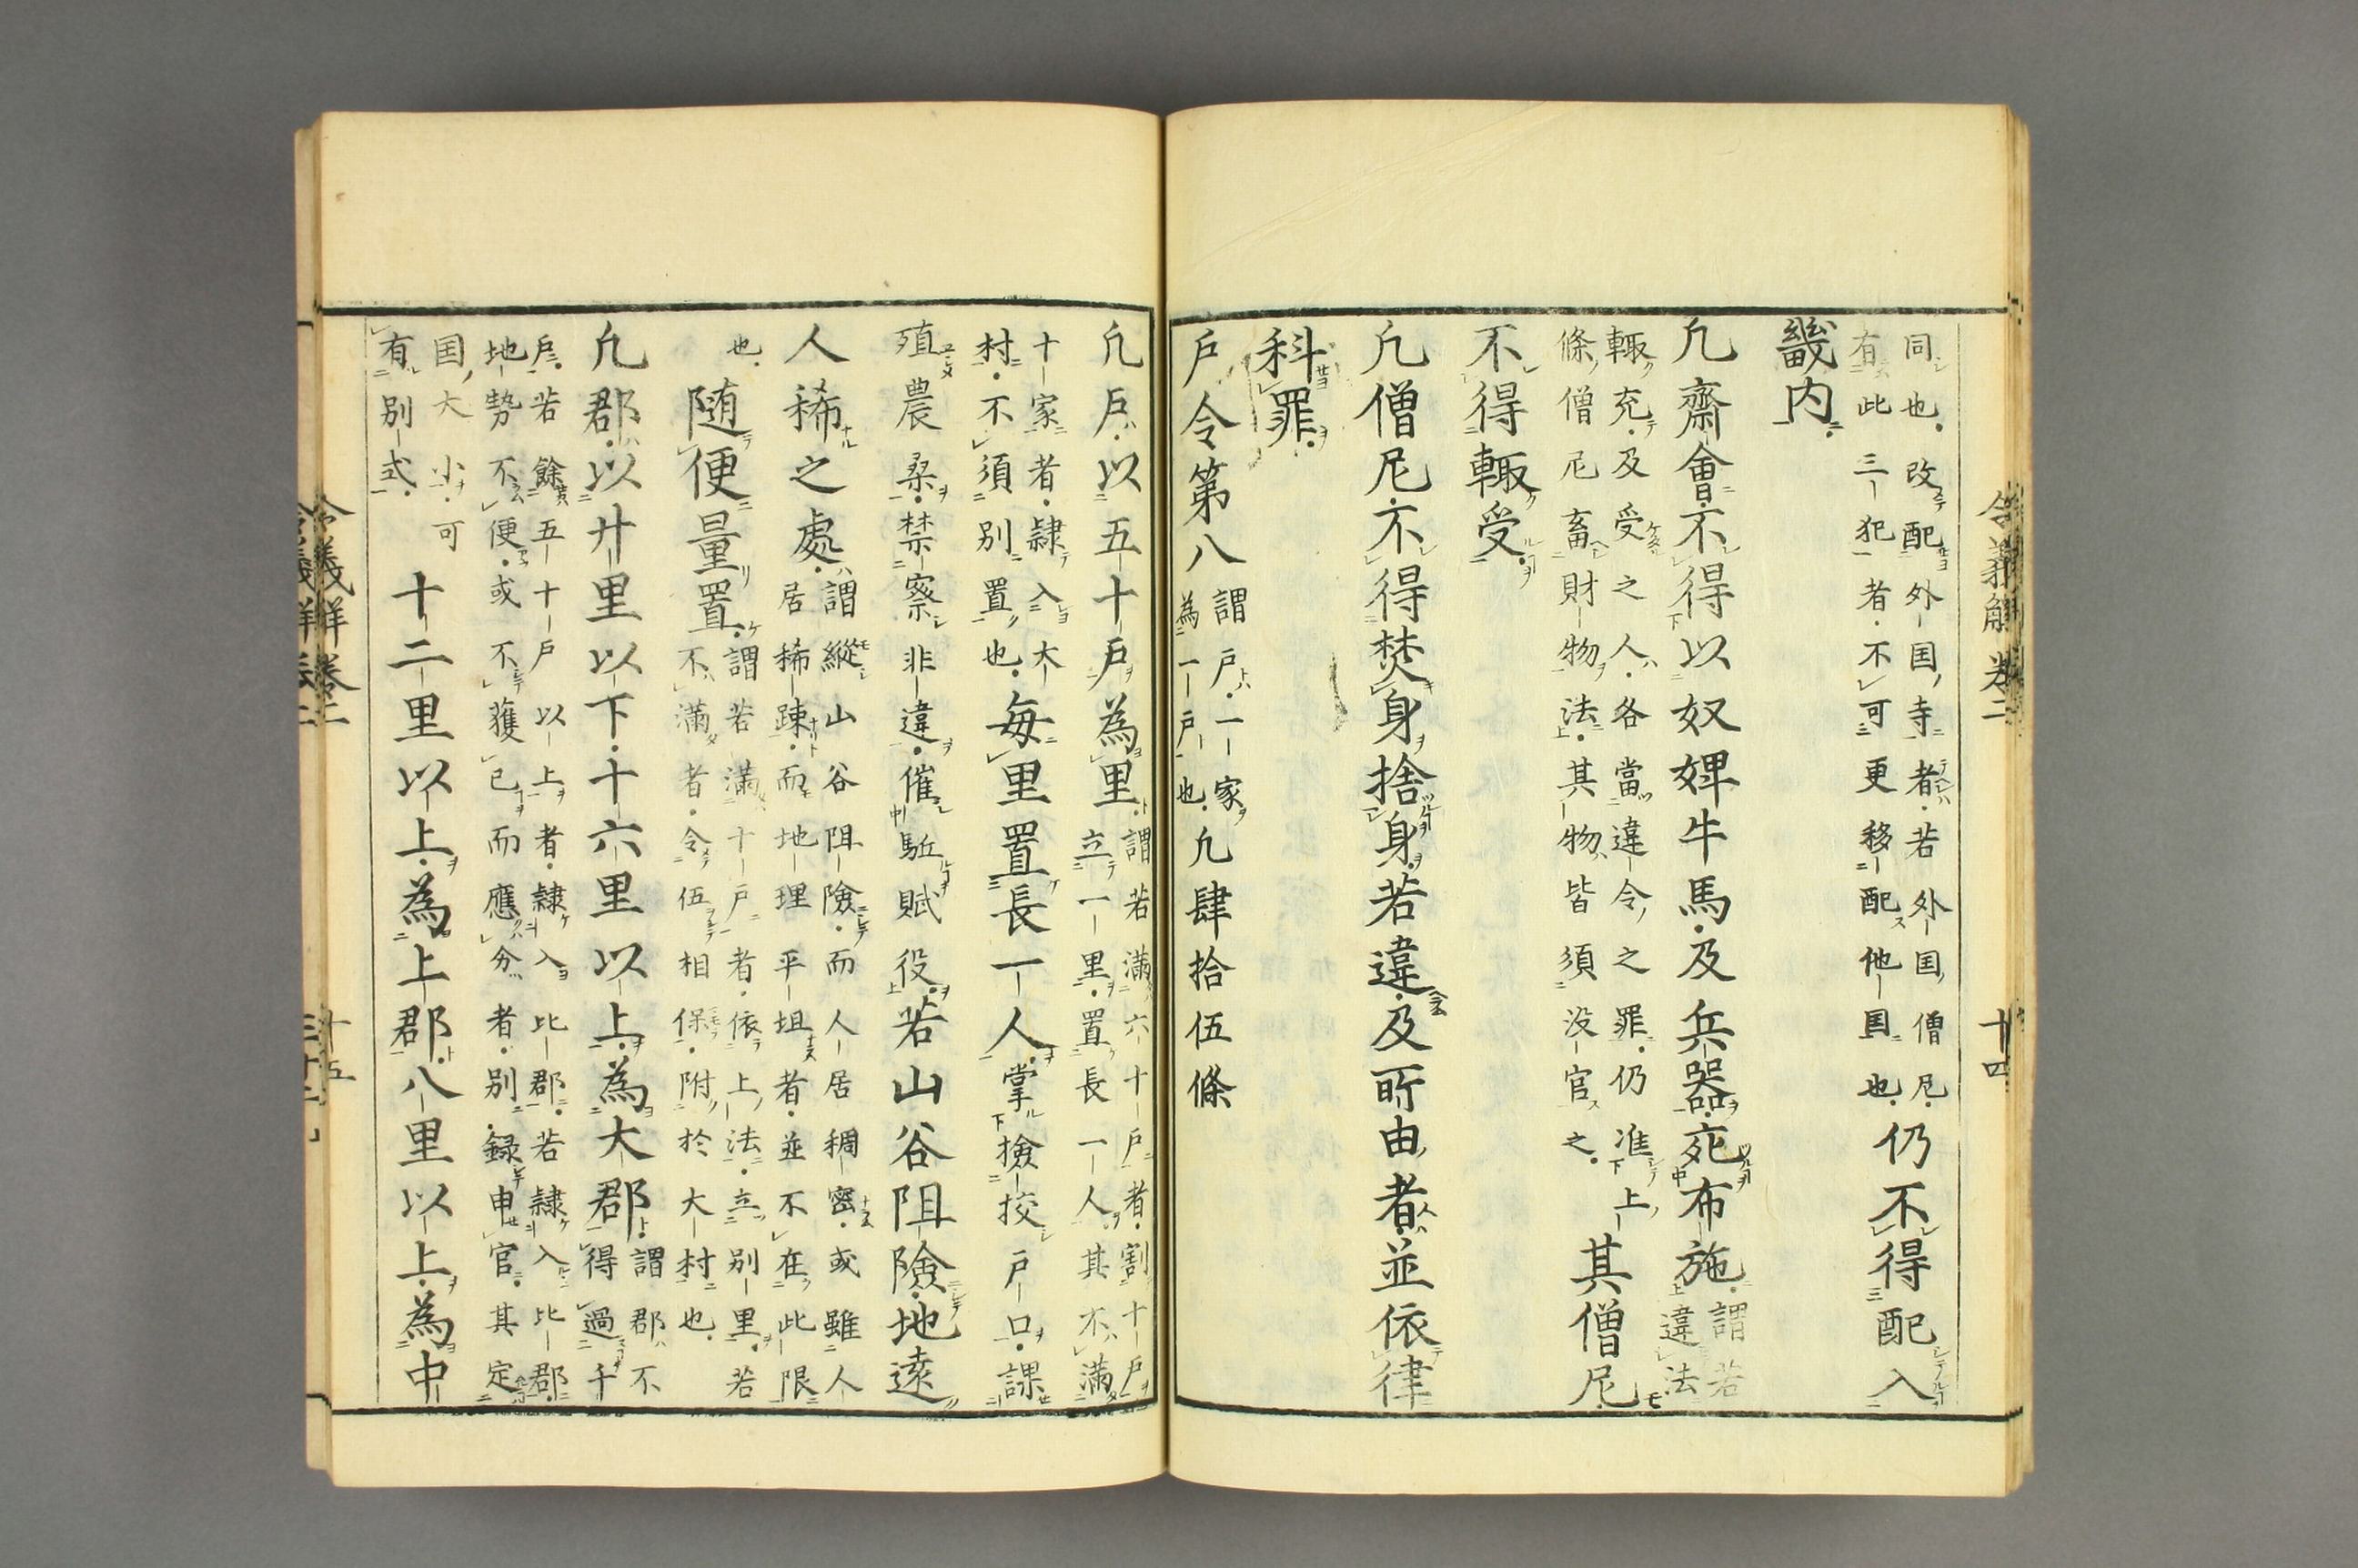 令義解 卷二 十四
同也。改配外国寺者。若外国僧尼。
有此三犯者。不可更移配他国也。
仍不得配入
畿内。
凡齋會。不得以奴婢牛馬。及兵器。充布施。
謂若
違法
輙充。及受之人。各當違令之罪。仍准上
條。僧尼畜財物法。其物皆須没官之。
其僧尼
不得輙受。
凡僧尼。不得焚身捨身。若違。及所由者。並依律
科罪。
戸令第八
謂戸。一家
為一戸也。
凡肆拾伍條
凡戸。以五十戸為里。
謂若満六十戸者。割十戸
立一里。置長一人。其不満
十家者。隷入大
村。不須別置也。
毎里置長一人。掌撿挍戸口。課
殖農桑。禁察非違。催駈賦役。若山谷阻險。地遠
人稀之處。
謂縱山谷阻險。而人居稠密。或雖人
居稀踈。而地理平坦者。並不在此限
也。
随便量置。
謂若満十戸者。依上法立別里。若
不満者。令伍相保。附於大村也。
凡郡。以廿里以下。十六里以上。為大郡。
謂郡不
得過千
戸。若餘五十戸以上者。隷入比郡。若隷入比郡。
地勢不便。或不獲已而應分者。別録申官。其定
国大小。可
有別式。
十二里以上。為上郡。八里以上。為中
令義解 卷二 十五